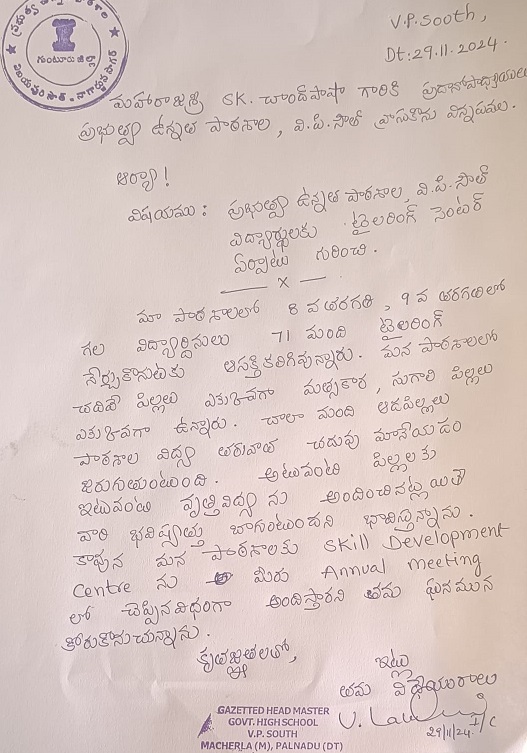 V.P. South,
Dt: 29.11.2024.
గుంటూరు జిల్లా
మహారాజశ్రీ SK. చాంద్‌పాషా గారికి ప్రధానోపాధ్యాయులు
ప్రభుత్వ ఉన్నత పాఠశాల, వి.పి.సౌత్ వ్రాసుకొను విన్నపము.
ఆర్యా!
విషయము: ప్రభుత్వ ఉన్నత పాఠశాల, వి.పి.సౌత్
విద్యార్థులకు టైలరింగ్ సెంటర్
ఏర్పాటు గురించి.
— x —
మా పాఠశాలలో 8 వ తరగతి, 9 వ తరగతిలో
గల విద్యార్థినులు 71 మంది టైలరింగ్
నేర్చుకొనుటకు ఆసక్తి కలిగివున్నారు. మన పాఠశాలలో
చదివే పిల్లలు ఎక్కువగా మత్స్యకార, సుగాలి పిల్లలు
ఎక్కువగా ఉన్నారు. చాలా మంది ఆడపిల్లలు
పాఠశాల విద్య తరువాత చదువు మానేయడం
జరుగుతుంటుంది. అటువంటి పిల్లలకు
ఇటువంటి వృత్తివిద్య ను అందించినట్లు అయితే
వారి భవిష్యత్తు బాగుంటుందని భావిస్తున్నాను.
కావున మన పాఠశాలకు Skill Development
Centre ను మీరు Annual meeting
లో చెప్పిన విధంగా అందిస్తారని తమ ఘనమున
కోరుకొనుచున్నాను.
కృతజ్ఞతలతో,
ఇట్లు
తమ విధేయురాలు
I/C
29/11/24.
GAZETTED HEAD MASTER
GOVT. HIGH SCHOOL
V.P. SOUTH
MACHERLA (M), PALNADU (DT)